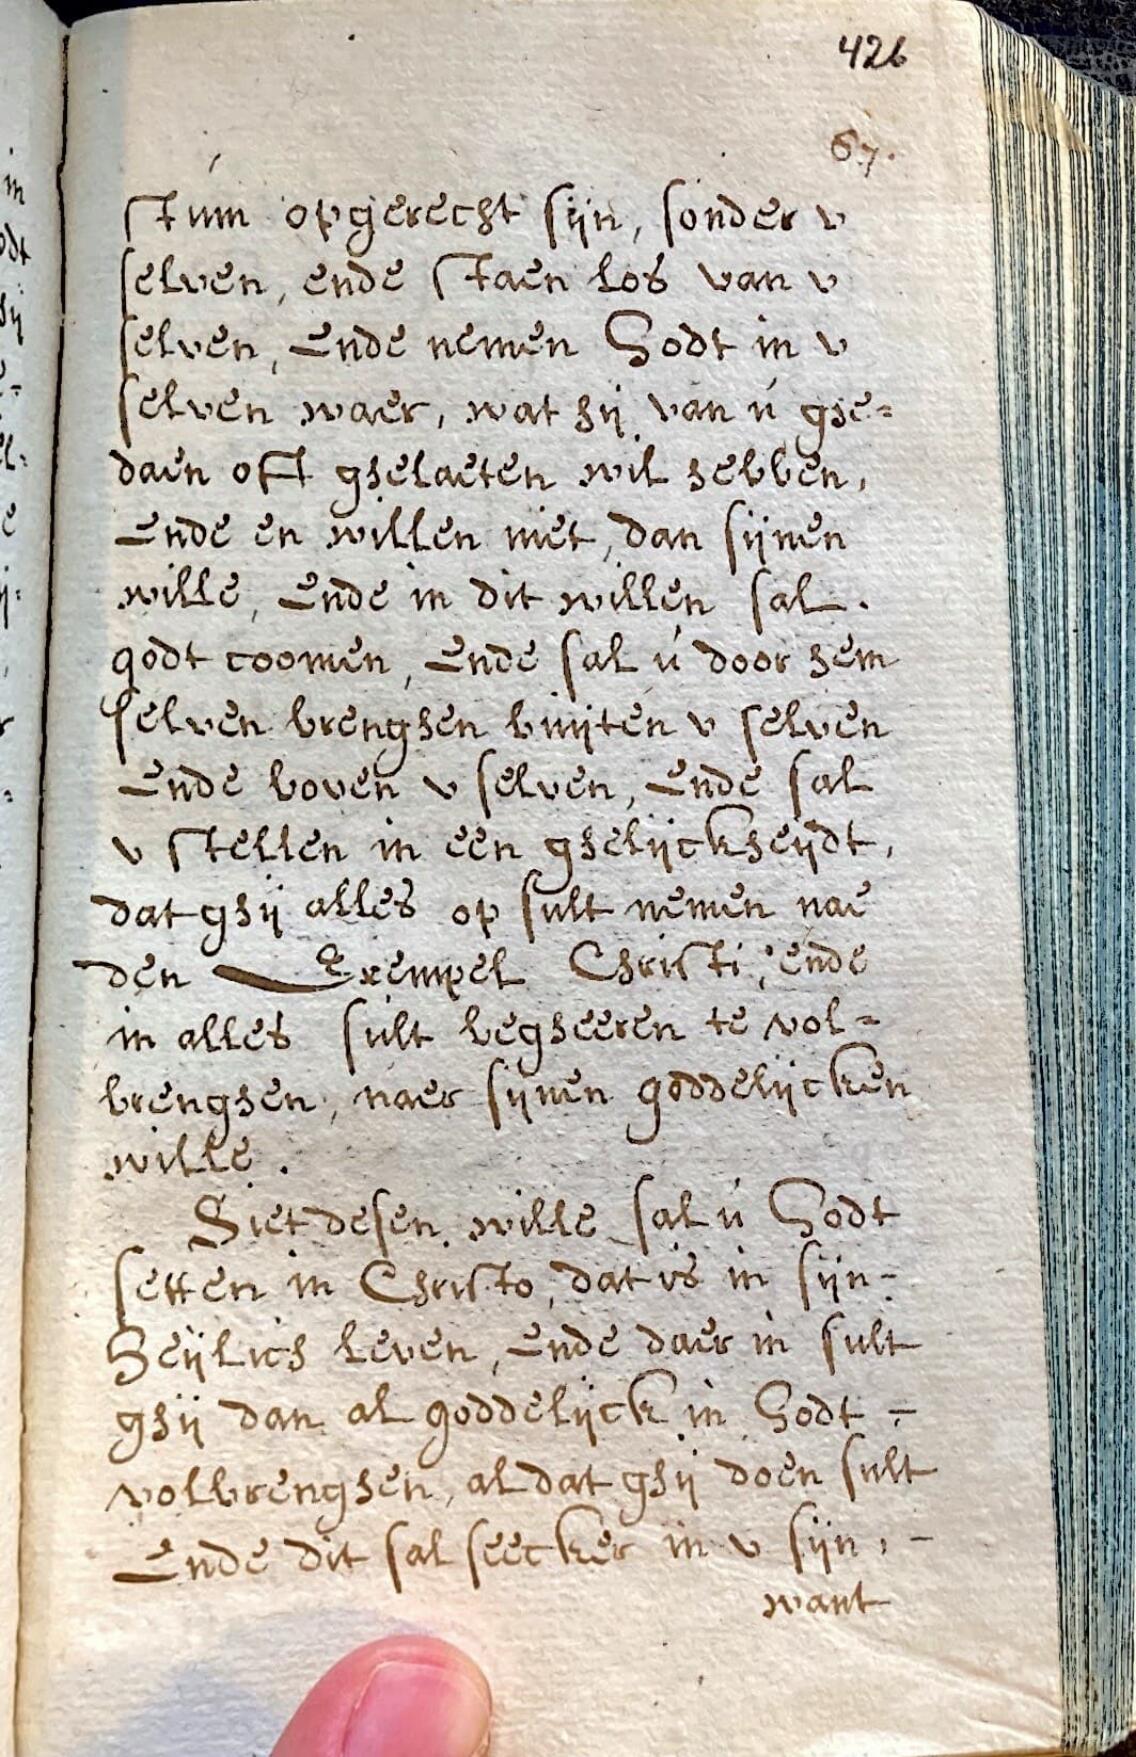 426
67.
stum opgerecht sijn, sonder v
selven, ende staen los van v
selven, Ende nemen Godt in v
selven waer, wat hij van ú ghe=
daen oft ghelaeten wil hebben,
Ende en willen niet, dan sijnen
wille, Ende in dit willen sal.
godt coomen, Ende sal ú door hem
selven brenghen buijten v selven
Ende boven v selven, Ende sal
v stellen in een ghelijckheijdt,
dat ghij alles op sult nemen nae
den Exempel Christi, ende
in alles sult begheeren te vol=
brenghen, naer sijnen goddelijcken
wille.
Siet desen wille sal ú Godt
setten in Christo, dat is in sijn-
Heijlich leven, Ende daer in sult
ghij dan al goddelijck in Godt =
volbrenghen, al dat ghij doen sult
Ende dit sal seecker in v sijn, -
want
in
odt
hij
el:
e
ij:
,
r
: